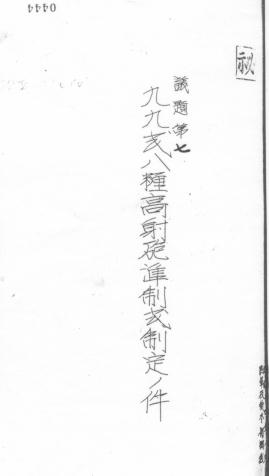 秘
議題第七
九九式八糎高射砲準制式制定ノ件
0444